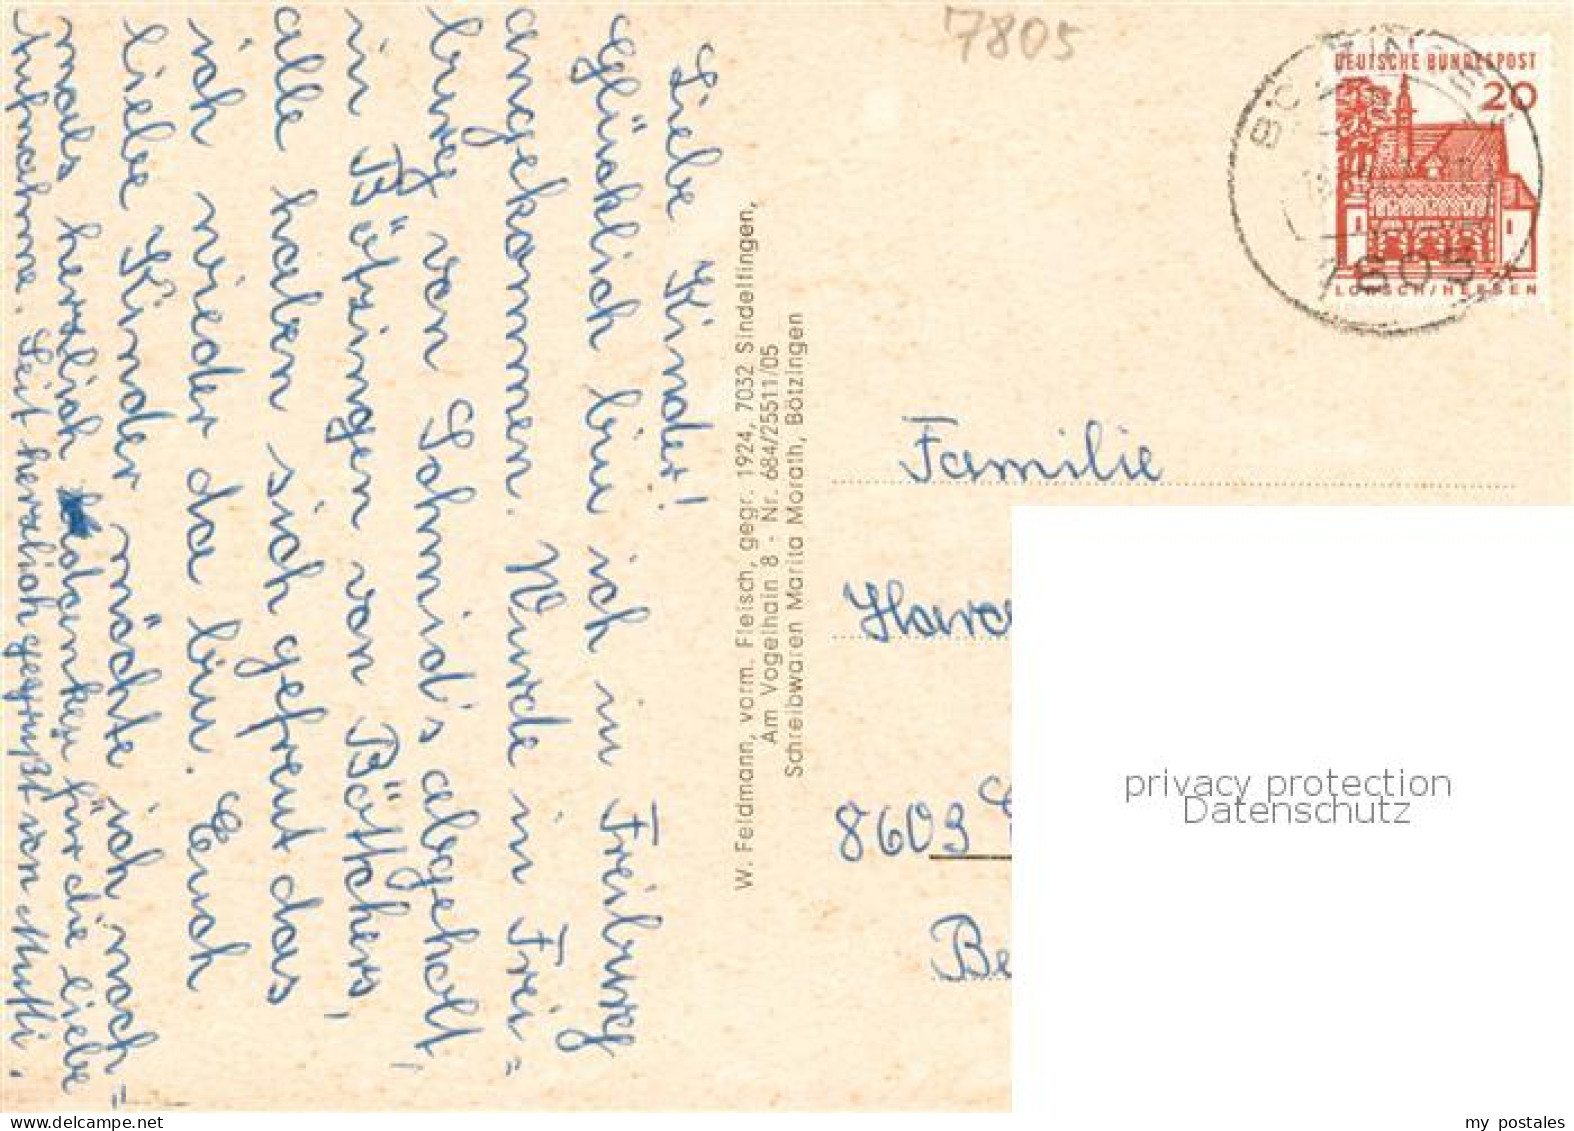 7805
DEUTSCHE BUNDESPOST
20
LORSCH/HESSEN
7805
Liebe Kinder!
Glücklich bin ich in Freiburg
angekommen. Wurde in Frei=
burg von Schmid's abgeholt,
in Bötzingen von Böttchers,
alle haben sich gefreut das
ich wieder da bin. Euch
liebe Kinder möchte ich noch=
mals herzlich bedanken für die liebe
Aufnahme. Seit herzlich gegrüßt von Mutti.
W. Feldmann, vorm. Fleisch, gegr. 1924, 7032 Sindelfingen,
Am Vogelhain 8 - Nr. 684/25511/05
Schreibwaren Marita Morath, Bötzingen
Familie
8603
privacy protection
Datenschutz
delcampe.net
my_postales